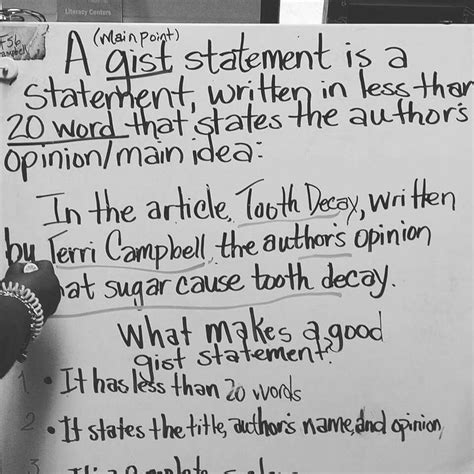 Literacy Centers
(Main Point)
A gist statement is a
statement, written in less than
20 word that states the author's
opinion/main idea:
In the article, Tooth Decay, written
by Terri Campbell, the author's opinion
hat sugar cause tooth decay.
What makes a good
gist statement?
1 • It has less than 20 words
2 • It states the title, author's name, and opinion
3